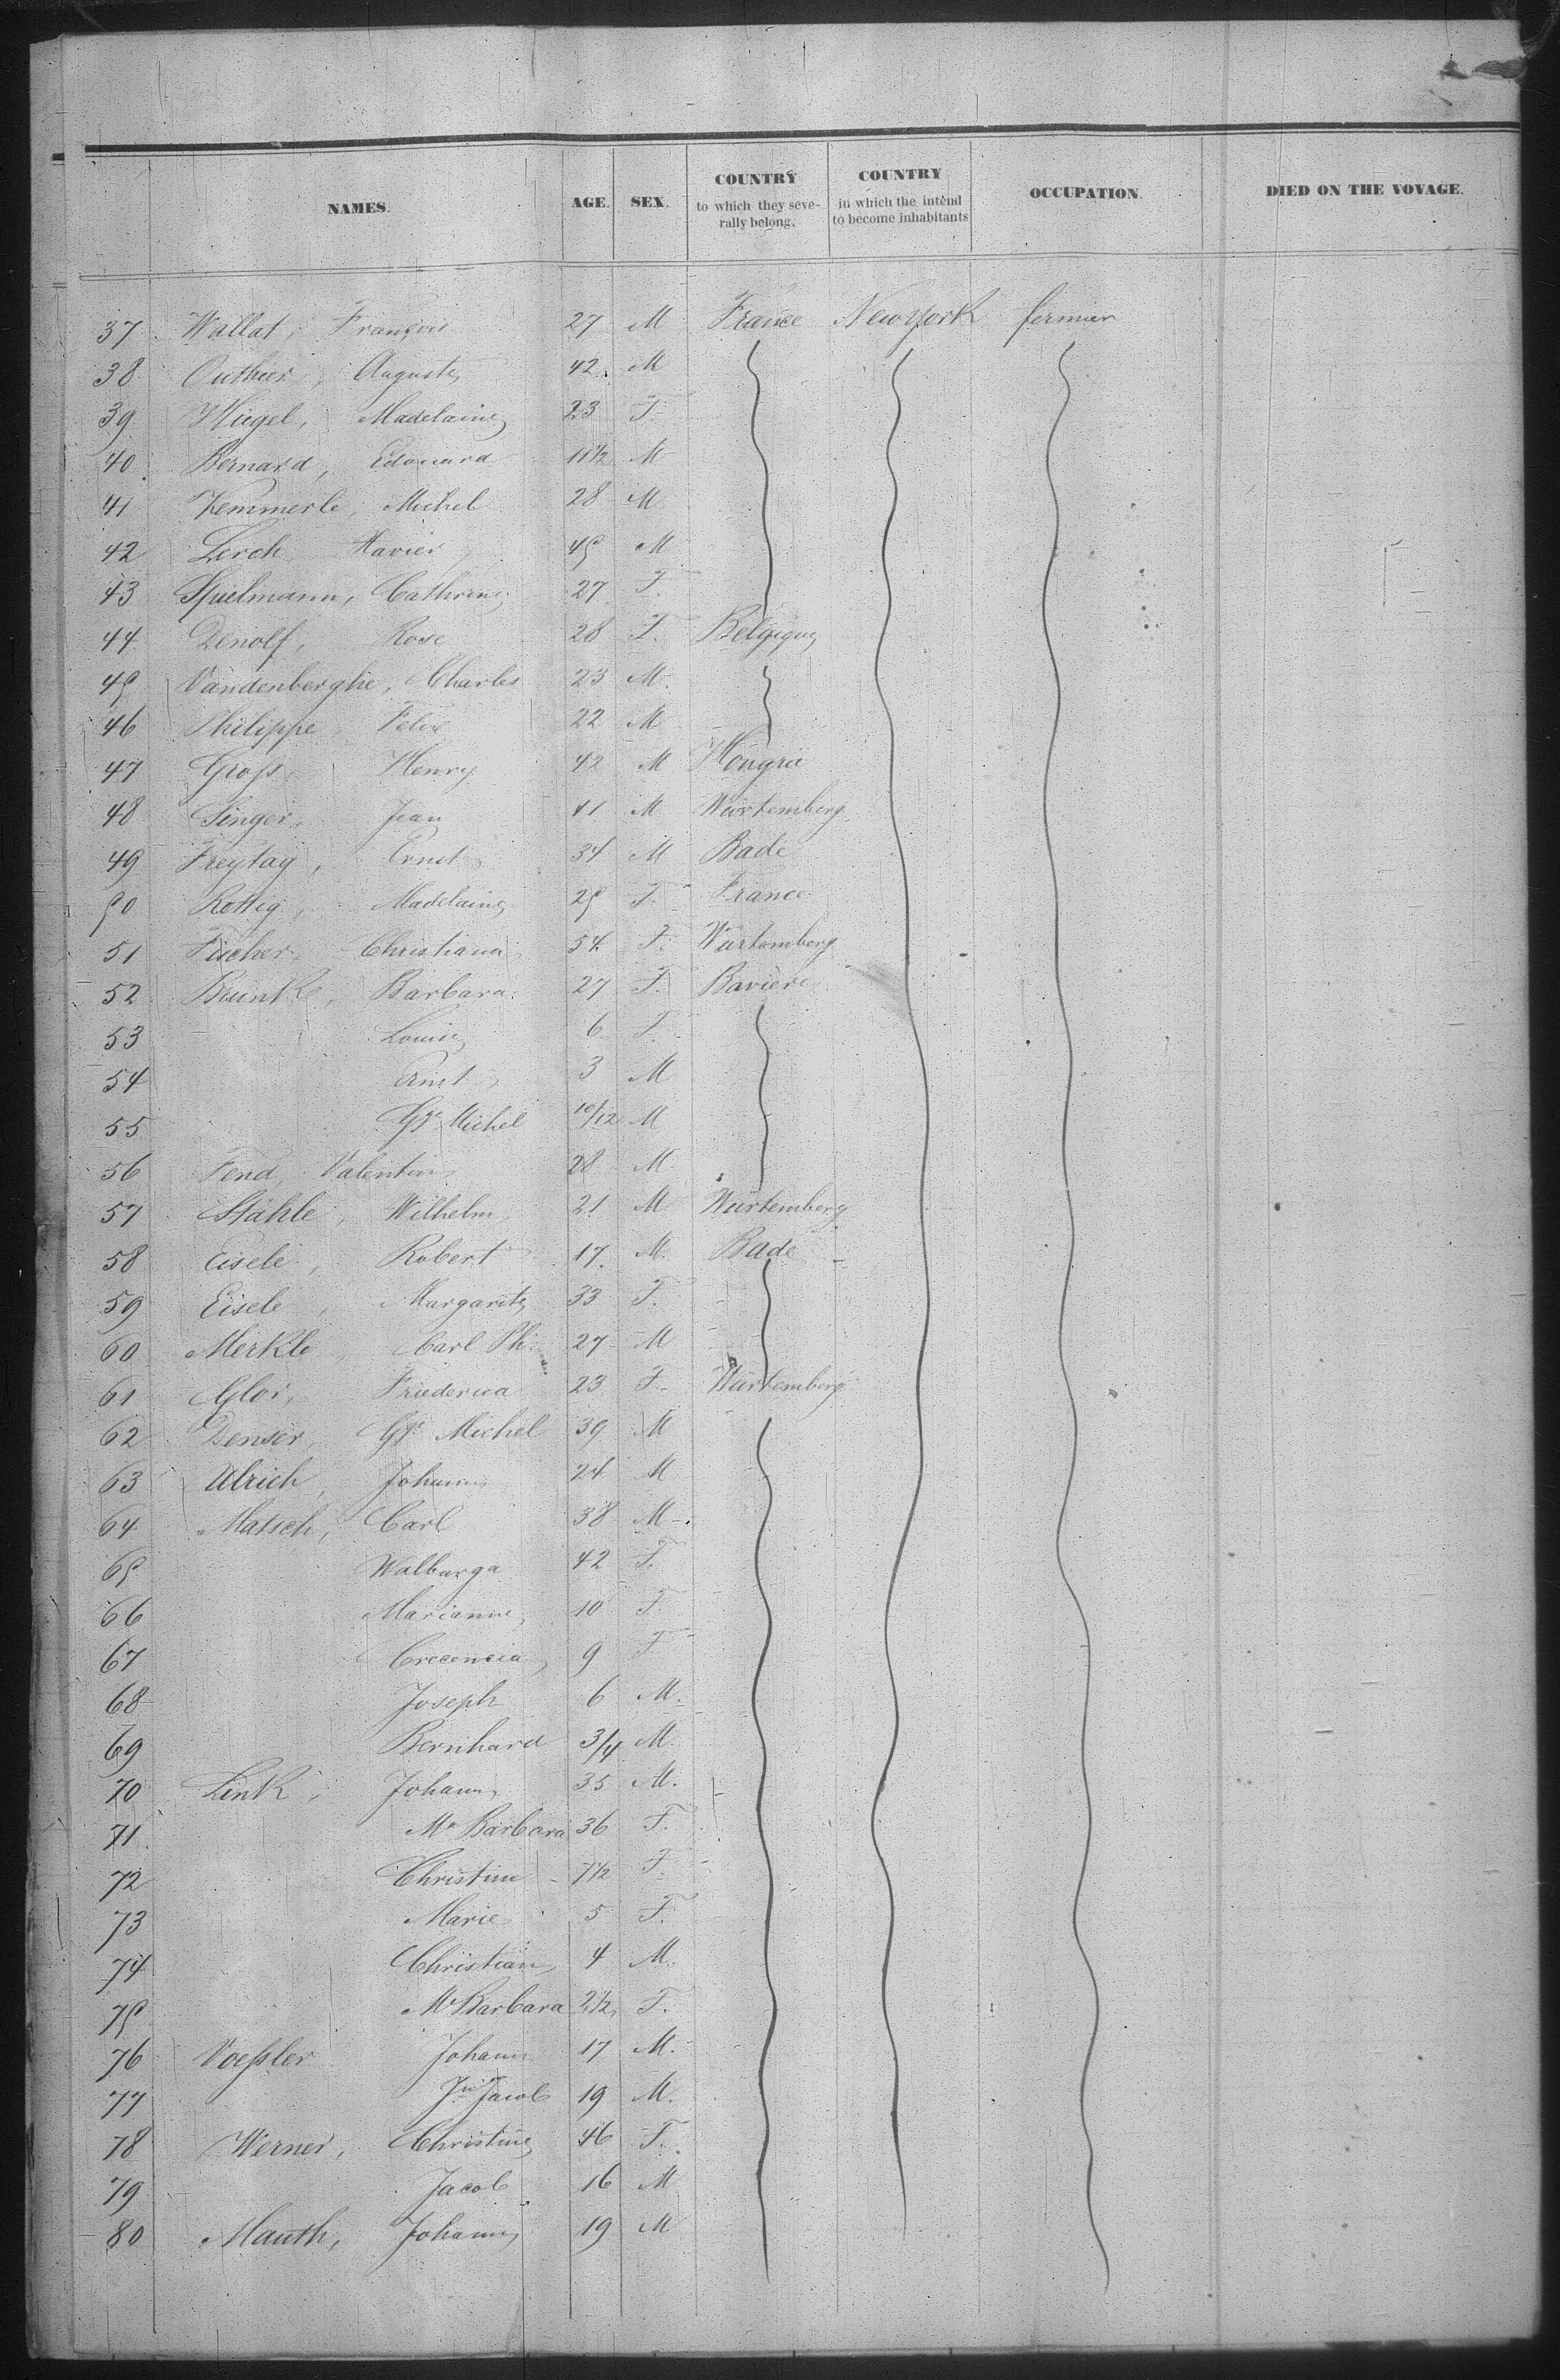 NAMES. AGE. SEX. COUNTRY to which they seve-rally belong. COUNTRY in which the intend to become inhabitants OCCUPATION. DIED ON THE VOYAGE.
37 Wallat, François 27 M France New York fermier
38 Outhier, Auguste 42 M
39 Hügel, Madelaine 23 F
40 Bernard, Edouard 11 1/2 M
41 Kemmerle, Michel 28 M
42 Lerch Xavier 45 M
43 Spielmann, Cathrine 27 F.
44 Denolf, Rose 28 F. Belgique
45 Vandenberghe, Charles 23 M.
46 Philippe Felix 22 M
47 Gross Henry 42 M Hongrie
48 Singer, Jean 41 M Würtemberg
49 Freytag, Ernst 34 M Bade
50 Rottig, Madelaine 25 F. France
51 Fischer, Christiana 54 F. Würtemberg
52 Barbara. 27 F. Baviere
53 Louise 6 F.
54 Ernst 3 M
55 Gg. Michel 10/12 M
56 Fend, Valentin 28 M
57 Stähle, Wilhelm 21 M Würtemberg
58 Eisele, Robert 17 M. Bade
59 Eisele, Margarite 33 F.
60 Merkle, Carl Ph. 27 M
61 Glor, Friederica 23 F. Würtemberg
62 Denser, Gg. Michel 39 M
63 Ulrich, Johann 24 M
64 Matsch, Carl 38 M
65 Walburga 42 F.
66 Marianne 10 F.
67 Crecencia 9 F
68 Joseph 6 M.
69 Bernhard 3/4 M.
70 Link, Johann 35 M.
71 Ma Barbara 36 F.
72 Christine 7 1/2 F.
73 Marie 5 F.
74 Christian 4 M.
75 Ma Barbara 2 1/2 F.
76 Voessler Johann 17 M.
77 Jn Jacob 19 M.
78 Werner, Christine 46 F.
79 Jacob 16 M
80 Mauth, Johann 19 M